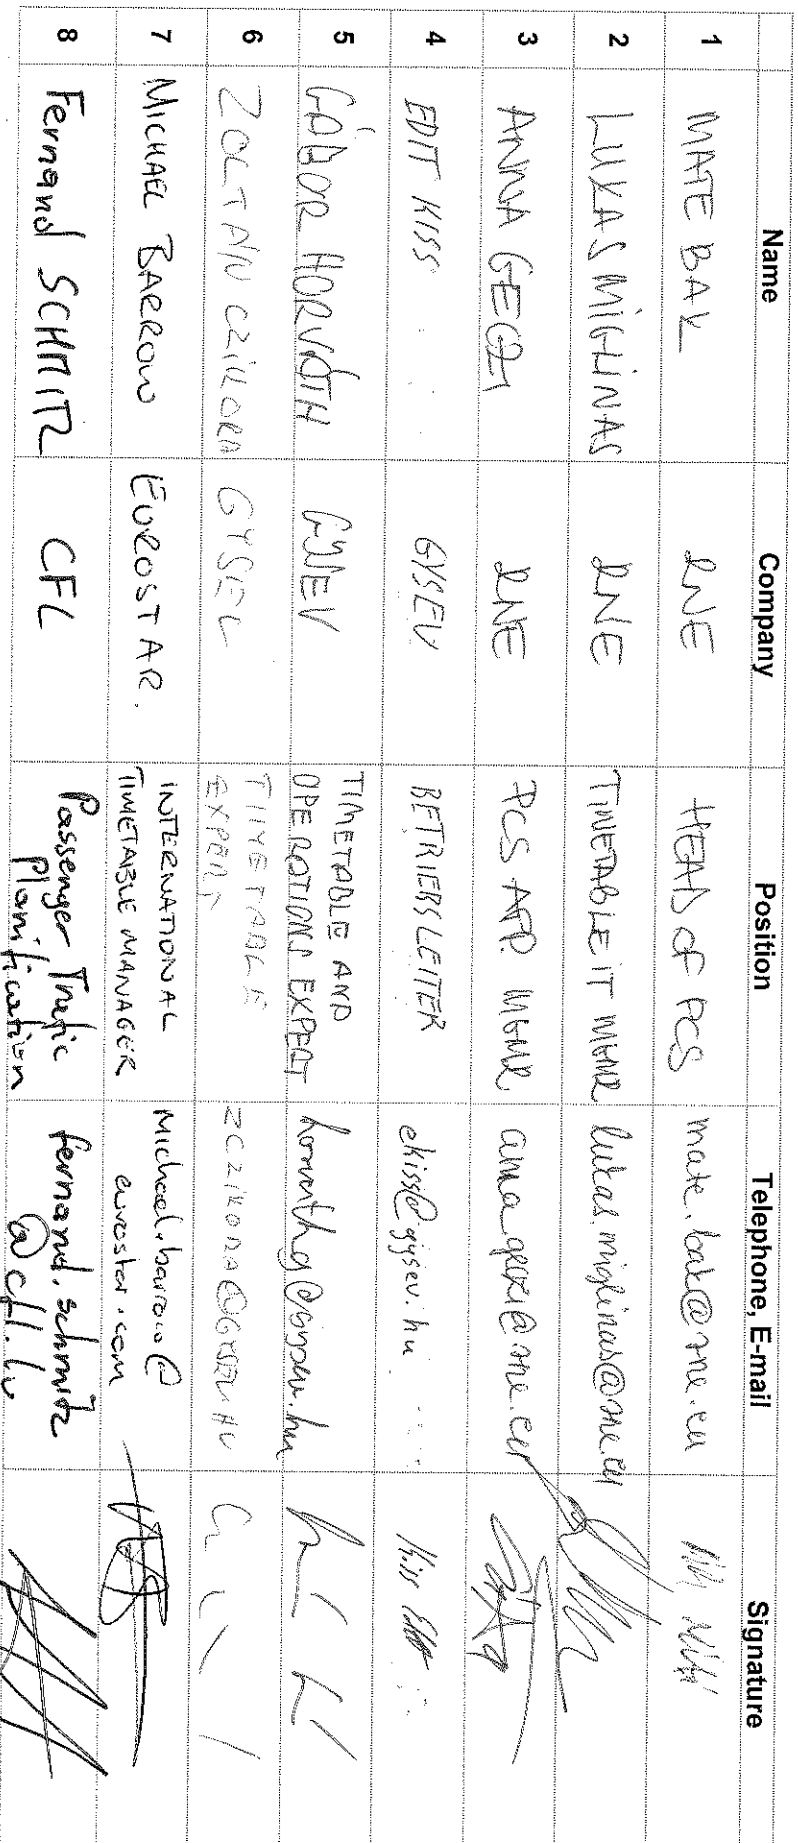 Name Company Position Telephone, E-mail Signature
1 MATE BAK RNE HEAD OF PCS mate.bak@rne.eu
2 LUKAS MIGLINAS RNE TIMETABLE IT MGMR lukas.miglinas@rne.eu
3 ANNA RNE PCS APP. MGMR
4 EDIT KISS GYSEV BETRIEBSLEITER ekiss@gysev.hu Kiss Edit
5 GÁBOR HORVÁTH GYSEV TIMETABLE AND
OPERATIONS EXPERT horvathg@gysev.hu
6 ZOLTÁN CZIKORA GYSEV TIMETABLE
EXPERT ZCZIKORA@GYSEV.HU
7 MICHAEL BARROW EUROSTAR. INTERNATIONAL
TIMETABLE MANAGER Michael.barrow@
eurostar.com
8 Fernand SCHMITZ CFL Passenger Trafic
Planification fernand.schmitz
@cfl.lu